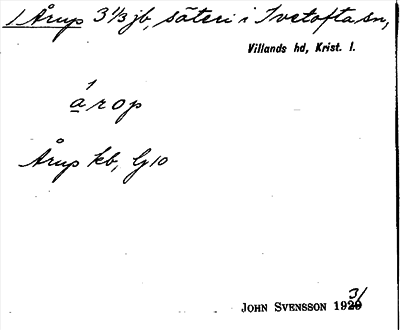 1 Årup 3 1/3 jb, säteri i Ivetofta sn,
Villands hd, Krist. l.
árop
Årup kb, Gj 10
JOHN SVENSSON 1931